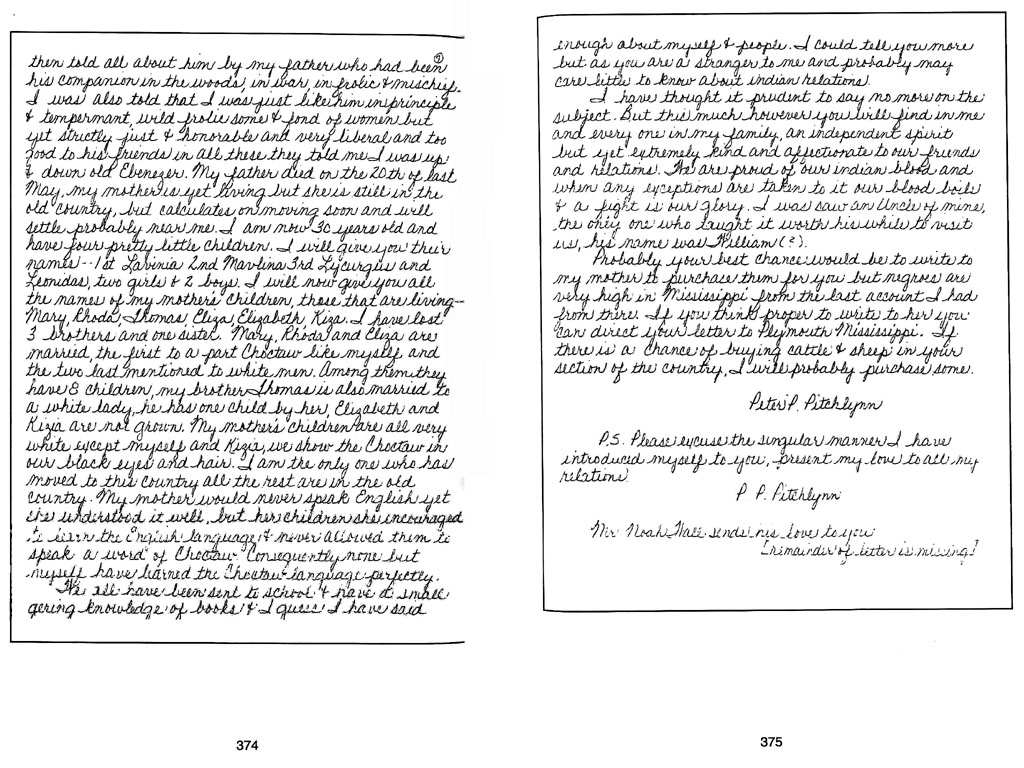 ②
then told all about him by my father who had been
his companion in the woods, in war, in frolic & mischief.
I was also told that I was just like him in principle
& tempermant, wild frolic some & fond of women but
yet strictly just & honorable and very liberal and too
good to his friends in all these they told me I was up
& down old Ebenezer. My father died on the 20th of last
May, my mother is yet living but she is still in the
old country, but calculates on moving soon and will
settle probably near me. I am now 30 years old and
have four pretty little children. I will give you their
names -- 1st Lavinia 2nd Mavlina 3rd Lycurgus and
Leonidas, two girls & 2 boys. I will now give you all
the names of my mother's children, those that are living --
Mary, Rhoda, Thomas, Eliza, Elizabeth Kiza. I have lost
3 brothers and one sister. Mary, Rhoda and Eliza are
married, the first to a part Choctaw like myself and
the two last mentioned to white men. Among them they
have 8 children, my brother Thomas is also married to
a white lady, he has one child by her, Elizabeth and
Kizia are not grown. My mother's children are all very
white except myself and Kizia, we show the Choctaw in
our black eyes and hair. I am the only one who has
moved to this country all the rest are in the old
country. My mother would never speak English yet
she understood it well, but her children she encouraged
to learn the English language & never allowed them to
speak a word of Choctaw. Consequently none but
myself have learned the Choctaw language perfectly.
We all have been sent to school & have a small
gering knowledge of books & I guess I have said
374
enough about myself & people. I could tell you more
but as you are a stranger to me and probably may
care little to know about indian relations.
I have thought it prudent to say no more on the
subject. But this much however you will find in me
and every one in my family, an independent spirit
but yet extremely kind and affectionate to our friends
and relations. We are proud of our indian blood and
when any exceptions are taken to it our blood boils
& a fight is our glory. I was saw an Uncle of mine,
the only one who taught it worth his while to visit
us, his name was William (?).
Probably your best chance would be to write to
my mother to purchase them for you but negroes are
very high in Mississippi from the last account I had
from there. If you think proper to write to her you
can direct your letter to Plymouth Mississippi. If
there is a chance of buying cattle & sheep in your
section of the country, I will probably purchase some.
Peter P. Pitchlynn
P.S. Please excuse the singular manner I have
introduced myself to you, present my love to all my
relations.
P. P. Pitchlynn
Mr. Noah Wall sends his love to you
[remainder of letter is missing]
375